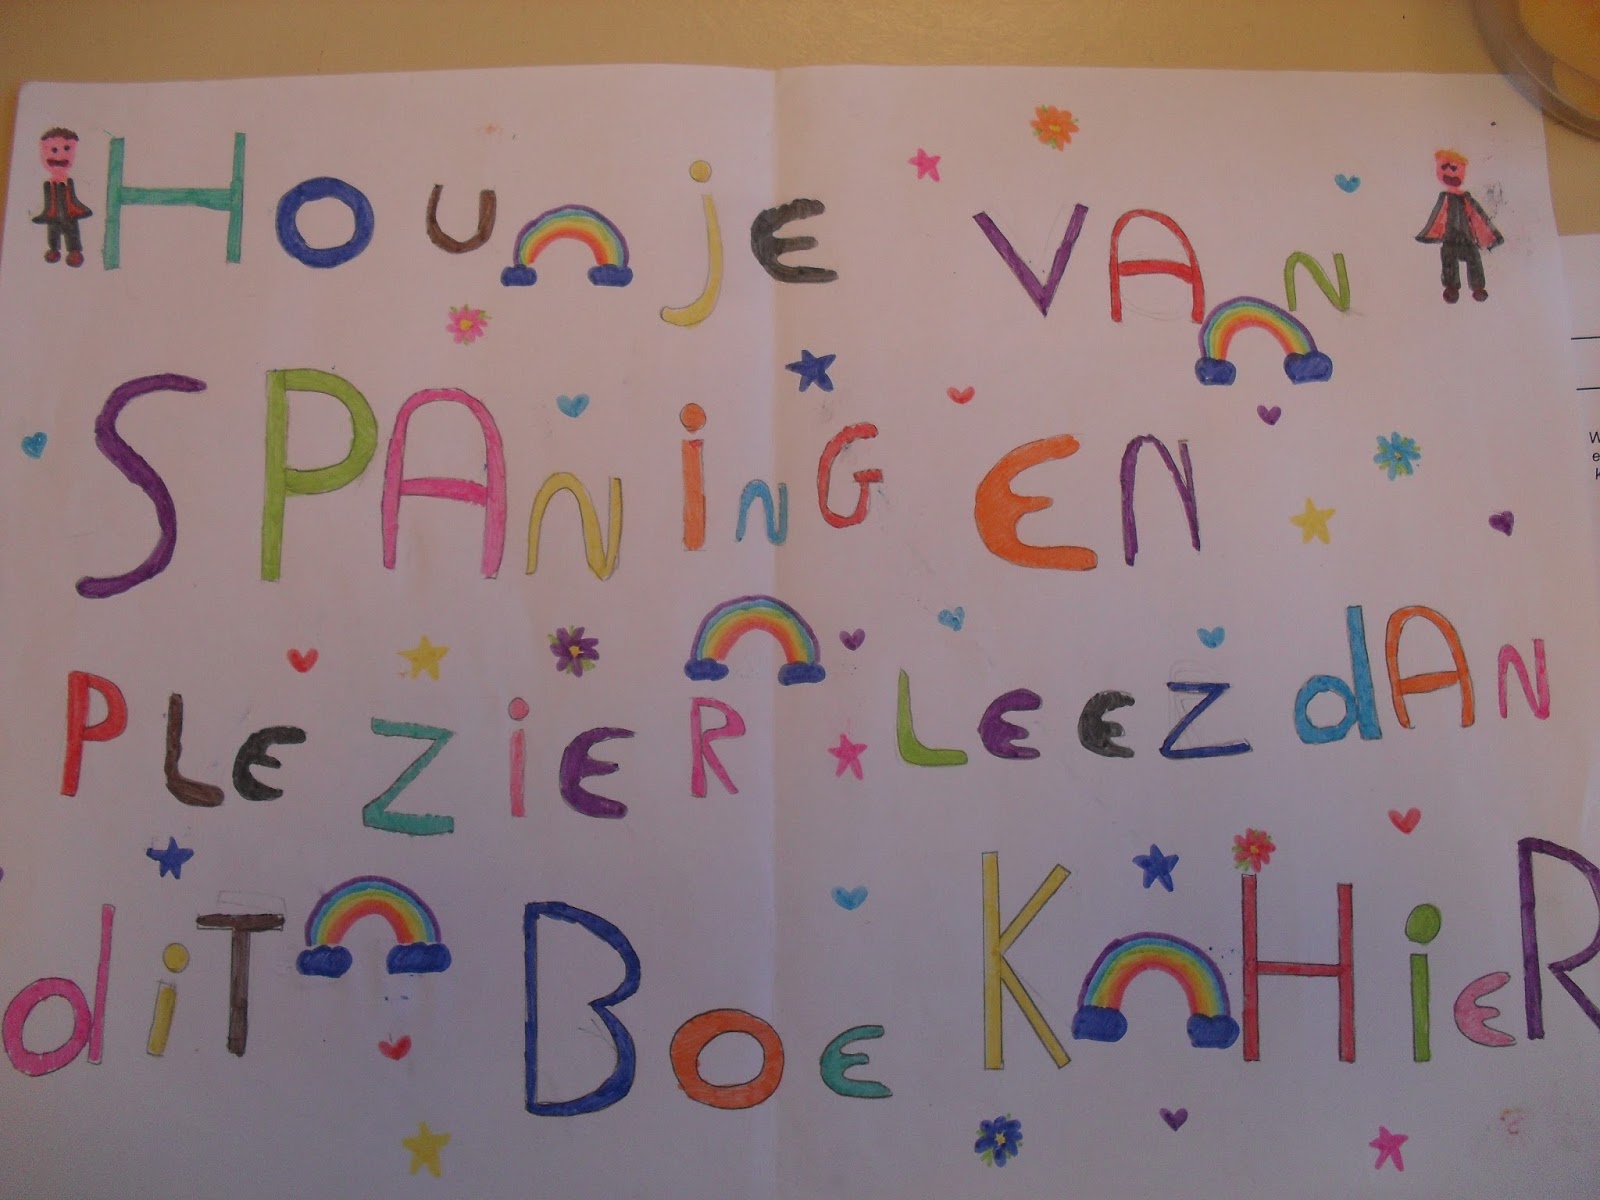 HOU jE VAN
SPANiNG EN
PLEZiER LEEZ dAN
diT BOEK HiER